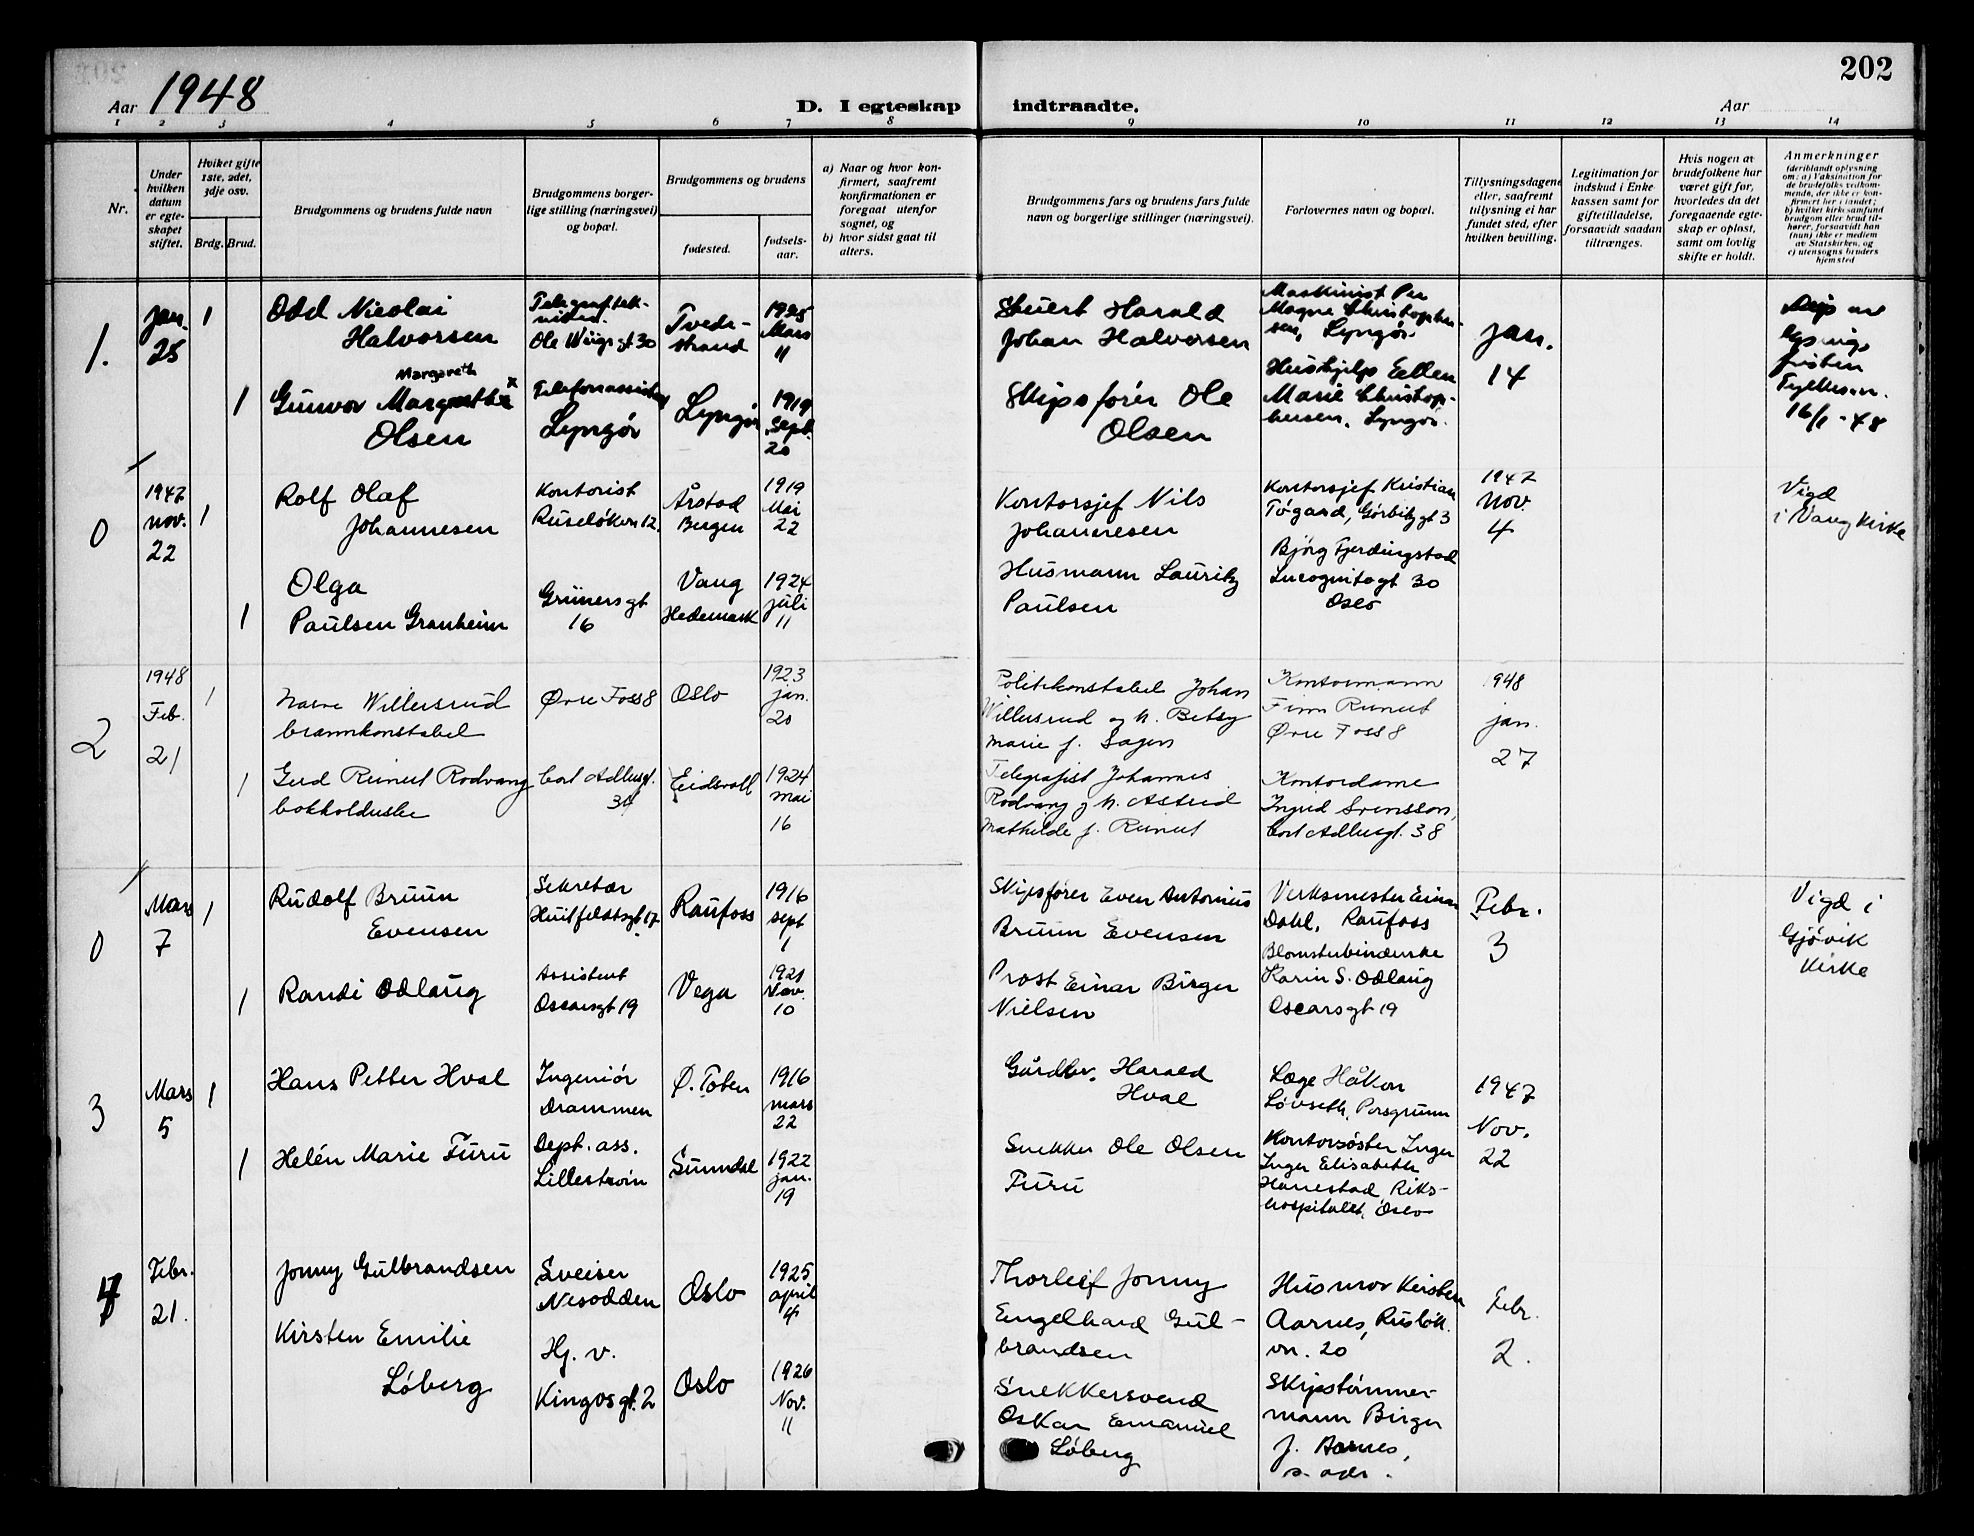 202
Aar 1948
D. I egteskap indtraadte.
Aar
1 2 3 4 5 6 7 8 9 10 11 12 13 14
Nr.
Under hvilken datum er egte-skapet stiftet.
Hvilket gifte 1ste, 2det, 3dje osv.
Brdg. Brud.
Brudgommens og brudens fulde navn
Brudgommens borger-lige stilling (næringsvei) og bopæl.
Brudgommens og brudens
fødested.
fødsels-aar.
a) Naar og hvor kon-firmert, saafremt konfirmationen er foregaat utenfor sognet, og
b) hvor sidst gaat til alters.
Brudgommens fars og brudens fars fulde navn og borgerlige stillinger (næringsvei).
Forlovernes navn og bopæl.
Tillysningsdagene eller, saafremt tillysning ei har fundet sted, efter hvilken bevilling.
Legitimation for indskud i Enke-kassen samt for giftetilladelse, forsaavidt saadan tiltrænges.
Hvis nogen av brudefolkene har været gift før, hvorledes da det foregaaende egte-skap er opløst, samt om lovlig skifte er holdt.
Anmerkninger (deriblandt oplysning om: a) Vaksination for de brudefolks vedkom-mende, der ikke er kon-firmert her i landet; b) hvilket kirkesamfund brudgom eller brud til-hører, forsaavidt han (hun) ikke er medlem av Statskirken, og c) utensogns bruders hjemsted
1.
Jan. 25
1
Odd Nicolai
Halvorsen
Ole Wiigs gt 30
Tvede-strand
1925
Mars
11
Johan Halvorsen
Maskinist Per
Magne Christophersen, Lyngør.
Jan.
14
1
Margareth
Gunvor Margrethe x
Olsen
Lyngør
Lyngør
1919
Sept.
20
Skipsfører Ole
Olsen
Hushjelp Ellen
Marie Christop-hersen, Lyngør.
16/1 - 48
0
1947
nov.
22
1
Rolf Olaf
Johannesen
Kontorist
Ruseløkvn 12.
Årstad
Bergen
1919
Mai
22
Kontorsjef Nils
Johannesen
Kontorsjef Kristian
Tøgard, Gørbitz gt 3
1947
Nov.
4
Vigd
i Vang kirke
1
Olga
Paulsen Granheim
Grünersgt
16
Vang
Hedemark
1924
juli
11
Husmann Lauritz
Paulsen
Bjørg Fjerdingstad
Incognitogt 30
Oslo
2
1948
Feb.
21
1
Willersrud
brannkonstabel
Øvre Foss 8
Oslo
1923
jan.
20
Politikonstabel Johan
Willersrud og h. Betsy
Marie f. Sagen
Kontormann
Finn Reinert
Øvre Foss 8
1948
jan.
27
1
Gerd Reinert Rodvang
bokholderske
Carl Adlersgt.
34
Eidsvoll
1924
mai
16
Telegrafist Johannes
Rodvang og h. Astrid
Mathilde f. Reinert
Kontordame
Ingrid Svensson,
Carl Adlersgt. 38
0
Mars
7
1
Rudolf Bruun
Evensen
Sekretær
Huitfeldtsgt 17
Raufoss
1916
sept
1
Skipsfører Even Antonius
Bruun Evensen
Verksmester Einar
Dahl, Raufoss
Febr.
3
Vigd i
Gjøvik
Kirke
1
Randi Odlaug
Assistent
Oscarsgt 19
Vega
1921
Nov.
10
Prost Einar Birger
Nielsen
Blomsterbinderske
Karin S. Odlaug
Oscarsgt 19
3
Mars
5
1
Hans Petter Hval
Ingeniør
Drammen
Ø. Toten
1916
mars
22
Gårdbr. Harald
Hval
Læge Håkon
Løvseth, Porsgrunn
1947
Nov.
22
1
Helén Marie Furu
Dept. ass.
Lillestrøm
Sunndal
1922
jan.
19
Snekker Ole Olsen
Furu
Kontorsøster Inger
Inger Elisabeth
Hanestad, Riks-
hospitalet, Oslo
4
Febr.
21.
Jonny Gulbrandsen
Sveiser
Nesodden
Oslo
1925
april
4
Thorleif Jonny
Engelhard Gul-
brandsen
Husmor Kirsten
Aarnes, Rusløk.
vn. 20
Febr.
2.
Kirsten Emilie
Løberg
Hj. v.
Kingosgt. 2
Oslo
1926
Nov.
11
Snekkersvend
Oskar Emanuel
Løberg
Skipstømmer-
mann Birger
J. Aarnes,
s. adr.